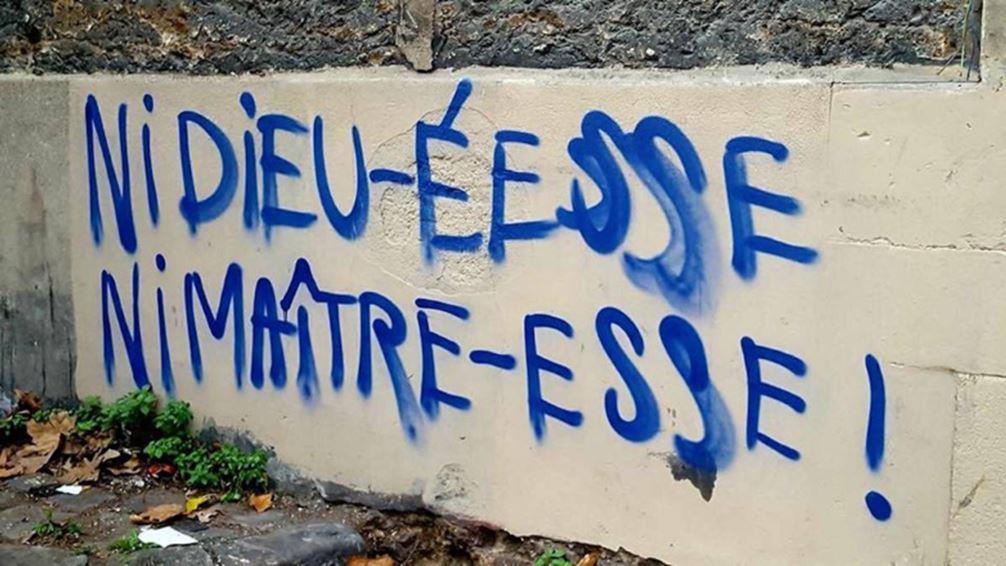 Ni DiEU-ÉESSE
Ni MAîTRE-ESSE !